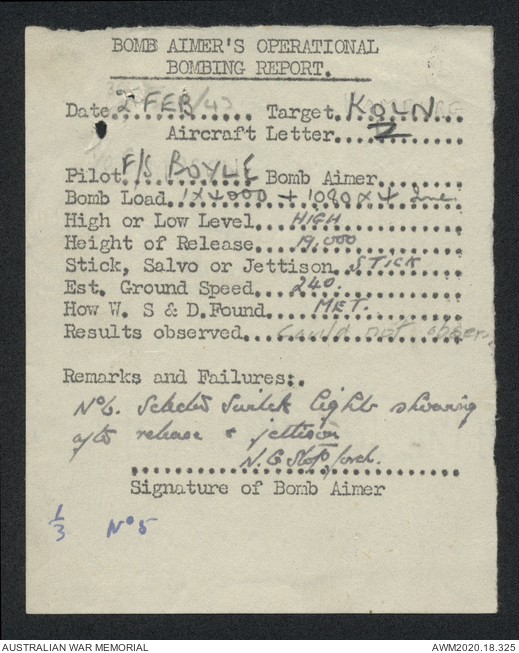 BOMB AIMER'S OPERATIONAL
BOMBING REPORT.
Date 2 FEB/43 Target KOLN
Aircraft Letter Z
Pilot F/S BOYLE Bomb Aimer
Bomb Load 1 X 4000 + 1080 X 4 Inc.
High or Low Level HIGH
Height of Release 19,000
Stick, Salvo or Jettison STICK
Est. Ground Speed 240.
How W. S & D.Found MET.
Results observed could not obser
Remarks and Failures:.
No 6. Selector Switch light showing
after release & jettison
N.G Stopford.
Signature of Bomb Aimer
1/3 No 5
AUSTRALIAN WAR MEMORIAL
AWM2020.18.325